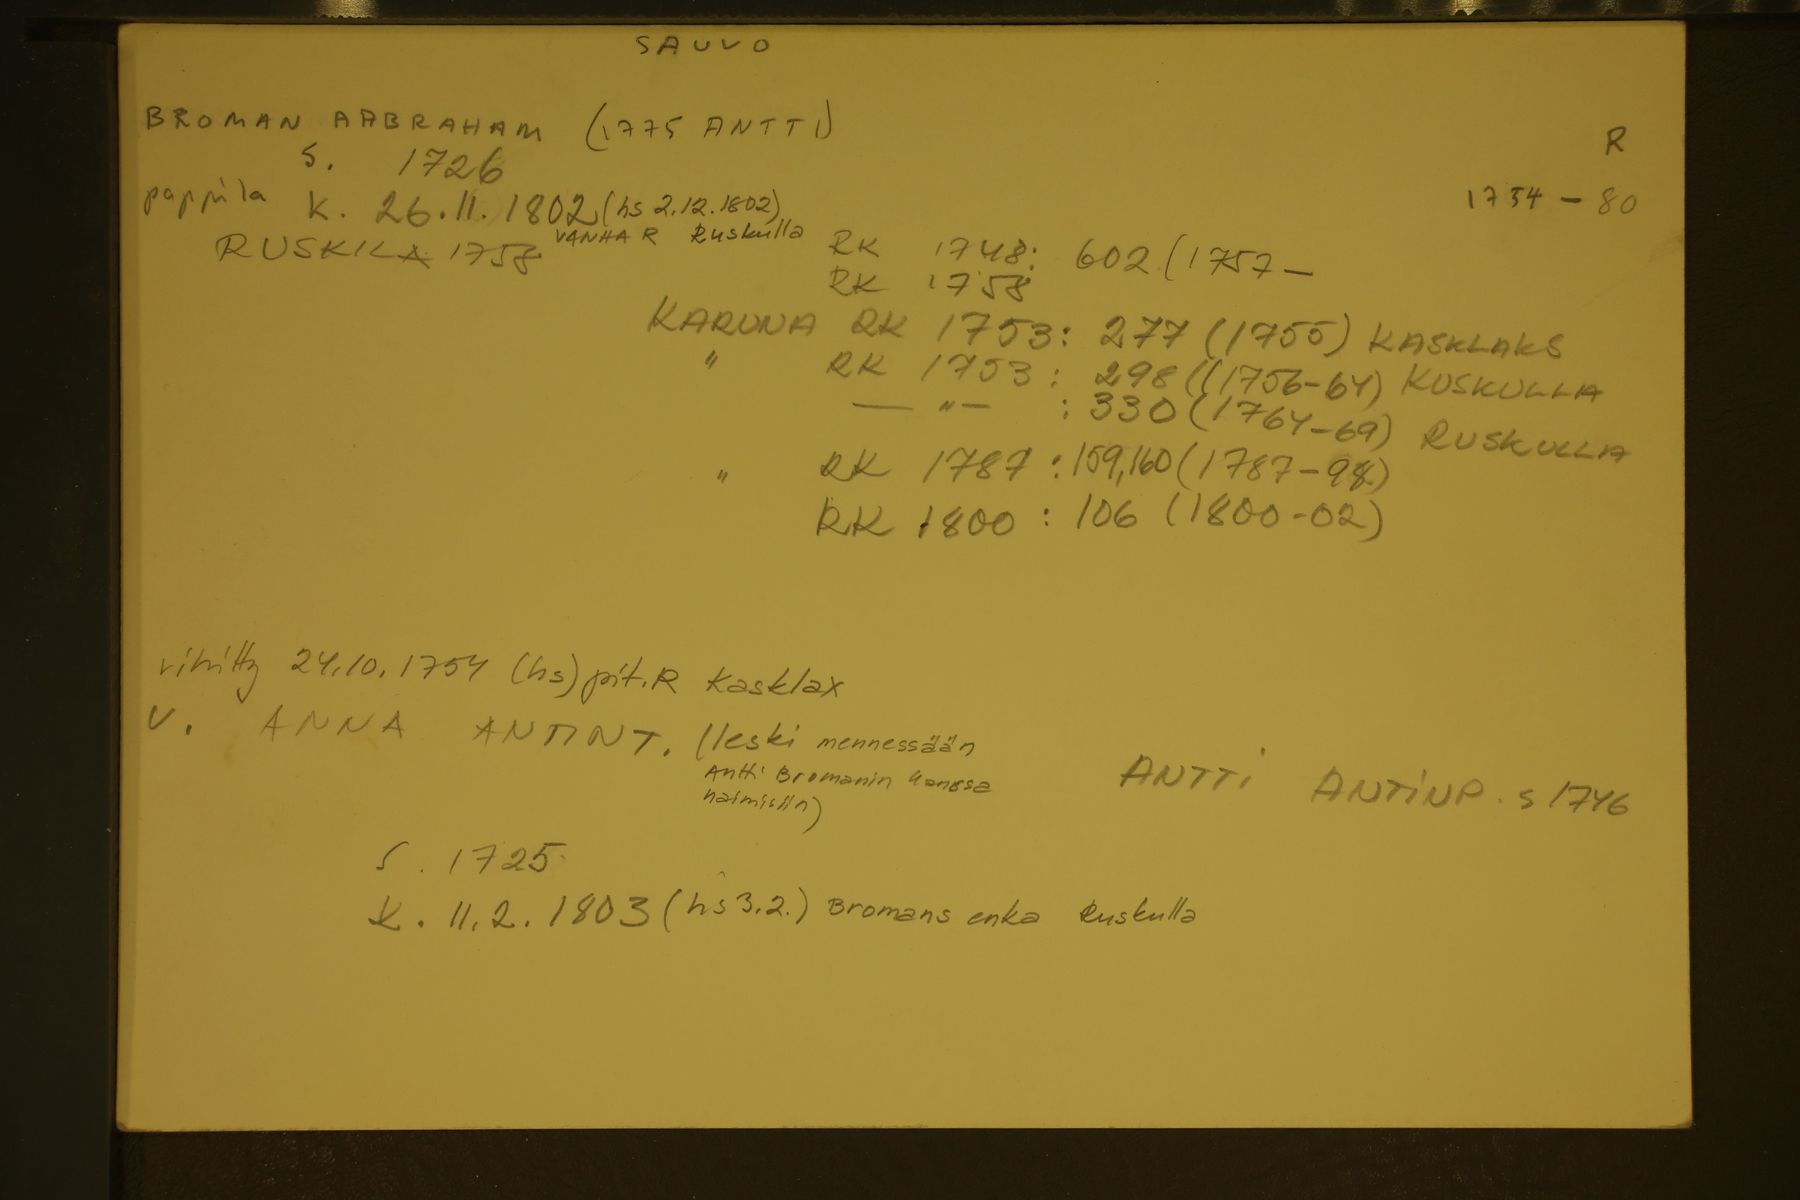 SAUVO
BROMAN AABRAHAM (1775 ANTTI)
R
S. 1726
pappila K. 26.11.1802 (hs 2.12.1802)
1754 - 80
RUSKILA 1758 VANHA R Ruskulla
RK 1748: 602 (1757 -
RK 1758
KARUNA RK 1753: 277 (1755) KASKLAKS
" RK 1753: 298 ((1756-64) KUSKULLA
— " — : 330 (1764-69) RUSKULLA
" RK 1787: 159,160 (1787-98)
RK 1800: 106 (1800-02)
vihitty 24.10.1754 (hs) pit. R Kasklax
V. ANNA ANTINT. (leski mennessään
Antti Bromanin kanssa
naimisiin)
ANTTI ANTINP. S 1746
S. 1725
K. 11.2.1803 (hs 3.2.) Bromans enka Ruskulla